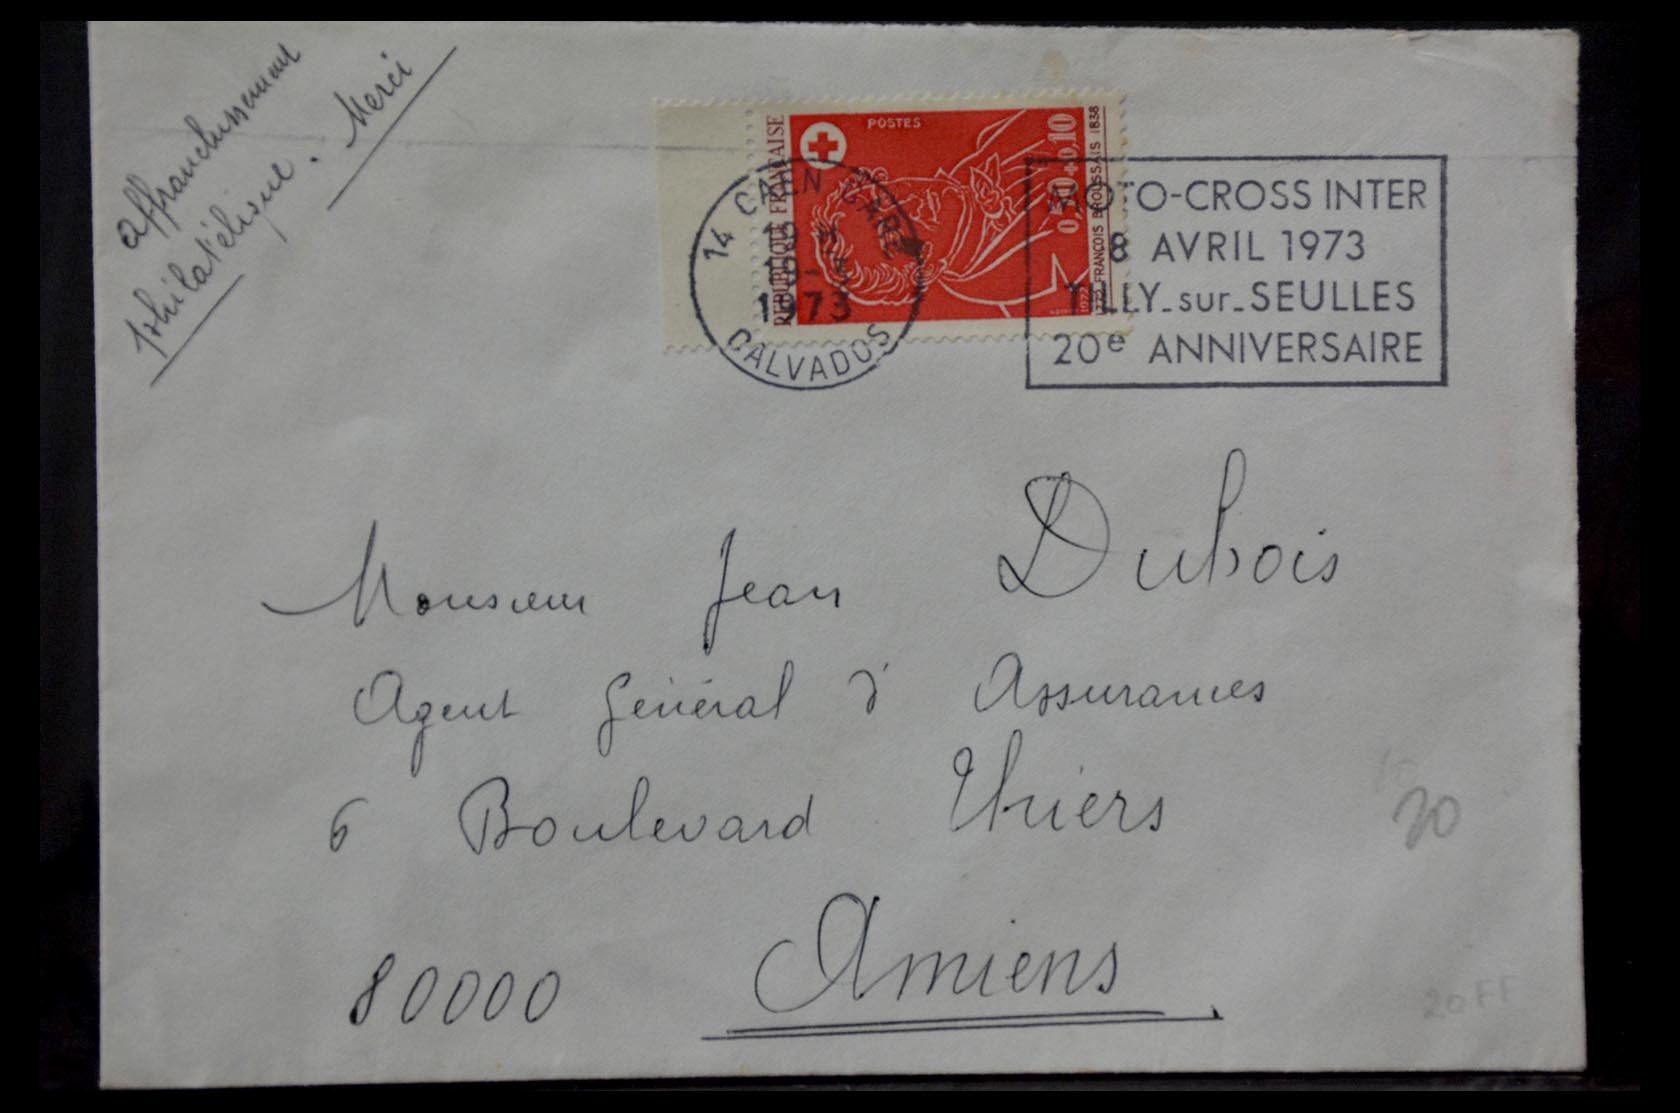 affranchissement
philatélique. Merci
POSTES
RÉPUBLIQUE FRANÇAISE
0,50+0,10
FRANÇOIS BROUSSAIS 1838
1972
14 CAEN GARE
1973
CALVADOS
MOTO-CROSS INTER
8 AVRIL 1973
TILLY-sur-SEULLES
20e ANNIVERSAIRE
Monsieur Jean Dubois
Agent Général d'Assurances
6 Boulevard Thiers
80000 Amiens.
20
20FF